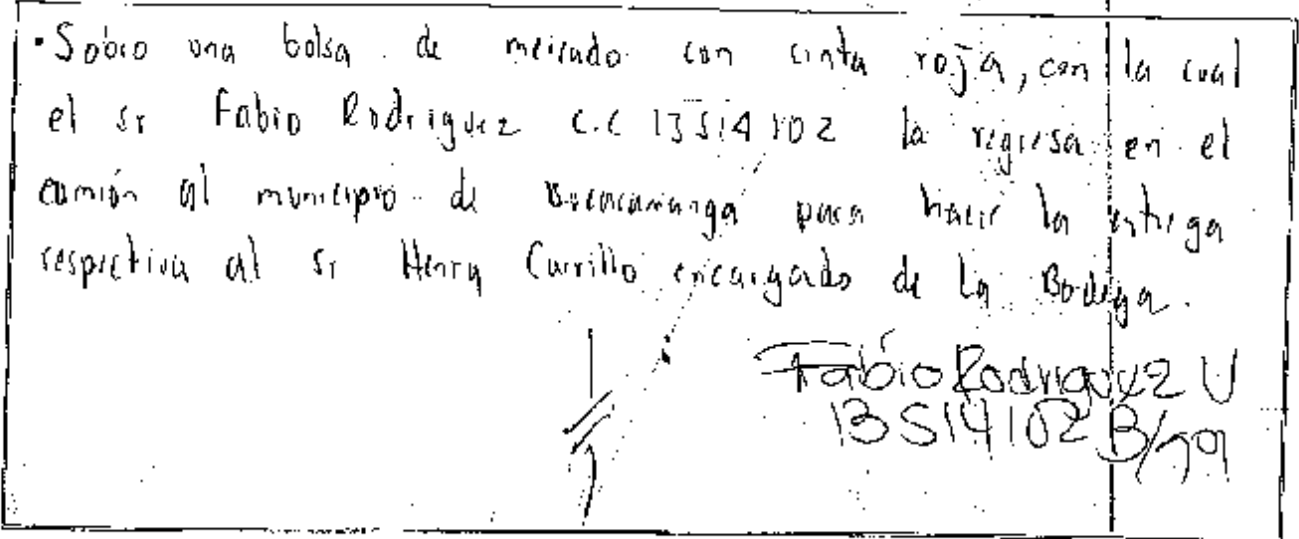 • Sobro una bolsa de mercado con cinta roja, con la cual
el sr Fabio Rodriguez C.C 13514102 la regresa en el
camión al municipio de Bucaramanga para hacer la entrega
respectiva al sr Henry Carrillo encargado de la Bodega.
Fabio Rodriguez U
13514102 B/ga